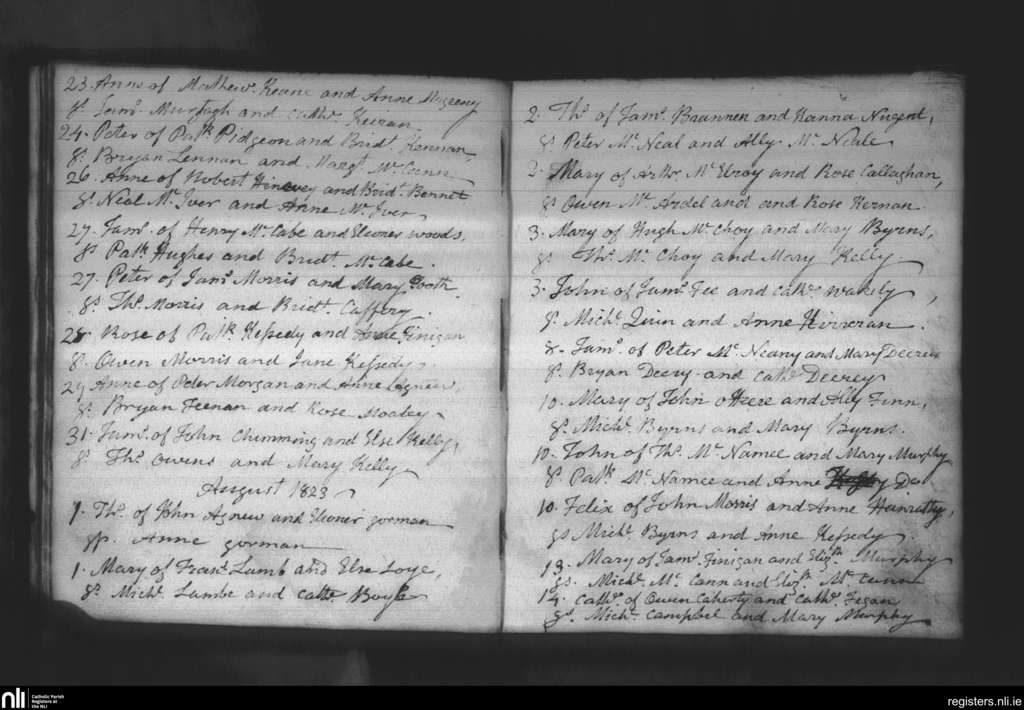 23. Anne of Mathew. Keane and Anne
Ss. Jams. Murtagh and Cathe. Keeran.
24. Peter of Patk. Pidgeon and Brid. Kennan,
Ss. Bryan Lennan and Margt. Mc. Cann
26. Anne of Robert and Bridt. Bennett
Ss. Neal Mc. Iver and Anne Mc. Iver
27. Jams. of Henry Mc. Cabe and Eleoner woods,
Ss. Patk. Hughes and Bridt. Mc. Cabe.
27. Peter of Jams. Morris and Mary
Ss. Ths. Morris and Bridt. Caffery.
28. Rose of Patk. Kefsedy and Anne Finigan
Ss. Owen Morris and Jane Kefsedy.
29 Anne of Peter Morgan and Anne Agnew,
Ss. Bryan Feenan and Rose
31. Jams. of John Chimming and Else Kelly,
Ss. Ths. Owens and Mary Kelly
August 1823
1. Ths. of John Agnew and Eleoner gorman
sp. Anne gorman
1. Mary of Frans. Lamb and Else Loye,
Ss. Michl. Lambe and Cathe. Boyle
2. Ths. of Jams. Braannen and Hanna Nugent,
Ss. Peter Mc. Neal and Ally Mc. Neale
2. Mary of Arthr. Mc. Elroy and Rose Callaghan,
Ss. Owen Mc. Ardel and and Rose Kernan
3. Mary of Hugh Mc. Choy and Mary Byrns,
Ss. Ths. Mc. Choy and Mary Kelly.
3. John of Jams. Fee and Cathe. Wakely,
Ss. Michl. Quin and Anne Kirreran.
8. Jams. of Peter Mc. Neany and Mary Deerey
Ss. Bryan Deery and Cathe. Deerey
10. Mary of John oHere and Ally Finn,
Ss. Michl. Byrns and Mary Byrns.
10. John of Ths. Mc. Namee and Mary Murphy
Ss. Patk. Mc. Namee and Anne Do
10. Felix of John Morris and Anne Hanratty,
Ss Michl. Byrns and Anne Kefsedy.
13. Mary of Jams. Finigan and Elizth. Murphy
Ss. Michl. Mc. Cann and Elizth. Mc. Cann
14. Cathe. of Owen Caherty and Cathe. Fegan
Ss. Michl. Campbel and Mary Murphy
nli Catholic Parish Registers at the NLI
registers.nli.ie